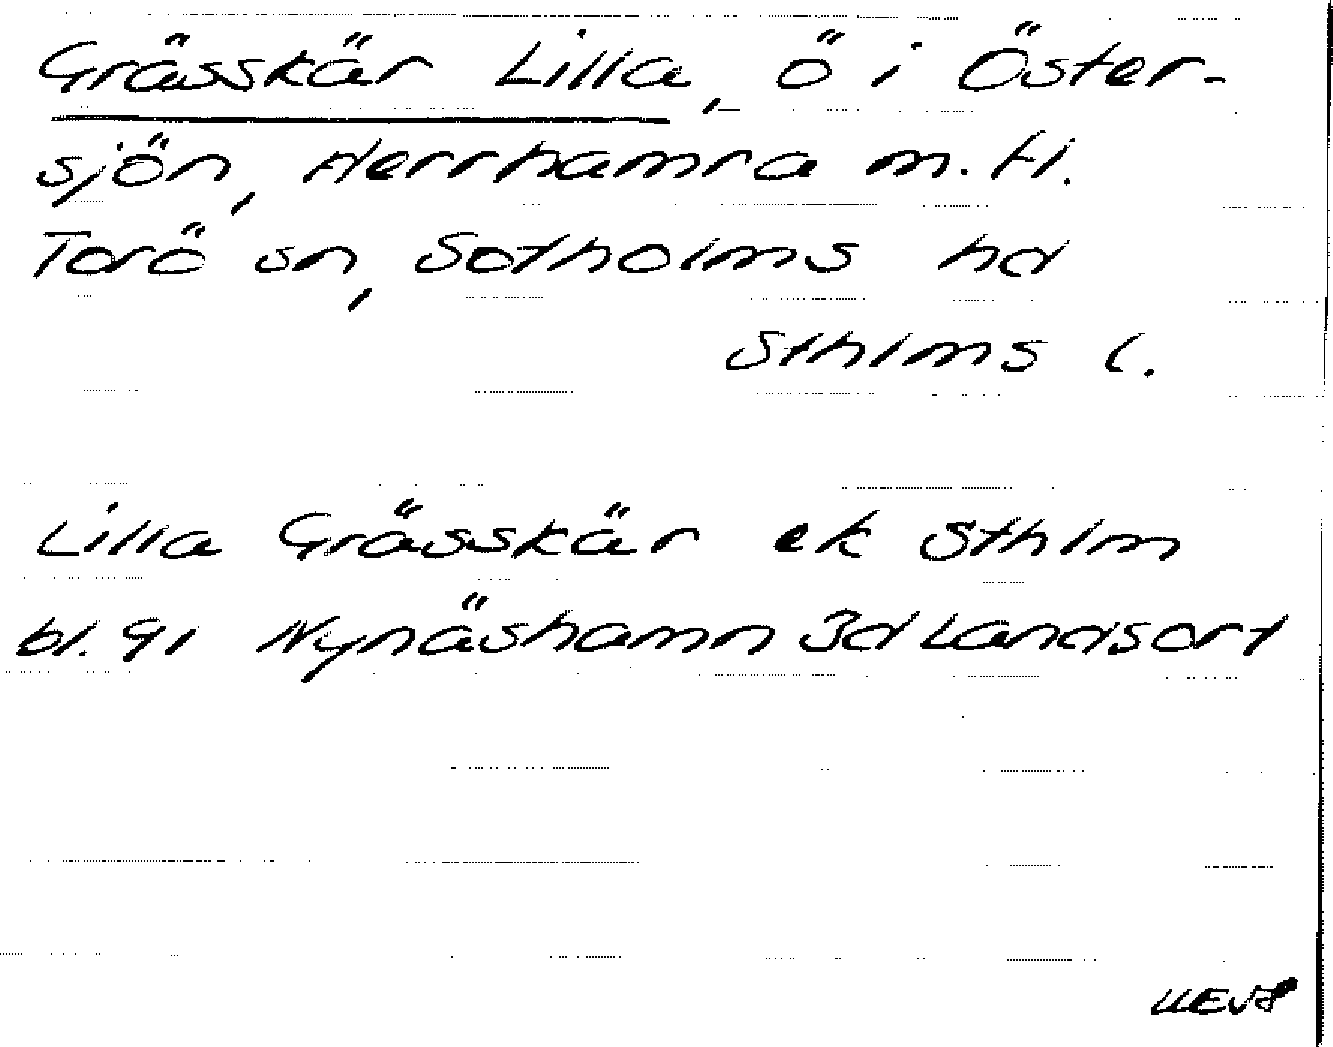 Grässkär Lilla, ö i Öster-
sjön, Herrhamra m. fl.
Torö sn, Sotholms hd
Sthlms l.
Lilla Grässkär ek Sthlm
bl. 91 Nynäshamn 3d Landsort